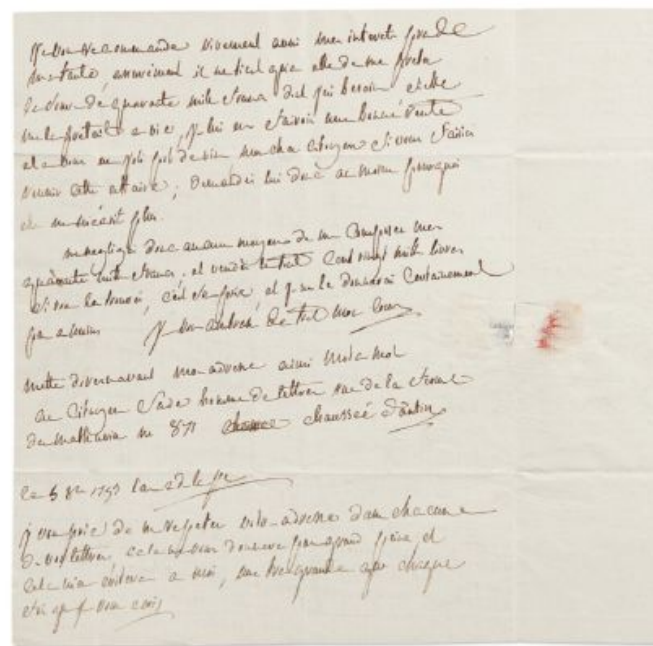 Je vous recommande vivement aussi mes interets près de
ma tante, assurément il ne tient qu'a elle de me preter
la somme de quarante mille francs dont j'ai besoin et elle
me le pretait a vie, je lui en ferois une bonne rente
et a vous un joli pot de vin mon cher citoyen si vous faisiez
reussir cette affaire; demandez lui donc au moins pourquoi
elle ne m'écrit plus.
ne negligez donc aucuns moyens de me composer mes
quarante mille francs, et vendez le tout cent vingt mille livres
si vous le trouvez, c'est et je ne le donnerai certainement
pas a moins je vous embrasse de tout mon coeur
mettez dorenavant mon adresse ainsi mot a mot
au Citoyen Sade homme de lettres rue de la ferme
des mathurins no 871 chaussée d'antin
ce 5 8bre 1793 l'an 2d de la
je vous prie de me repeter cette adresse dans chacune
de vos lettres, cela ne vous donnera pas grand peine et
cela m'en evitera a moi, une tres grande a chaque
fois que je vous ecris